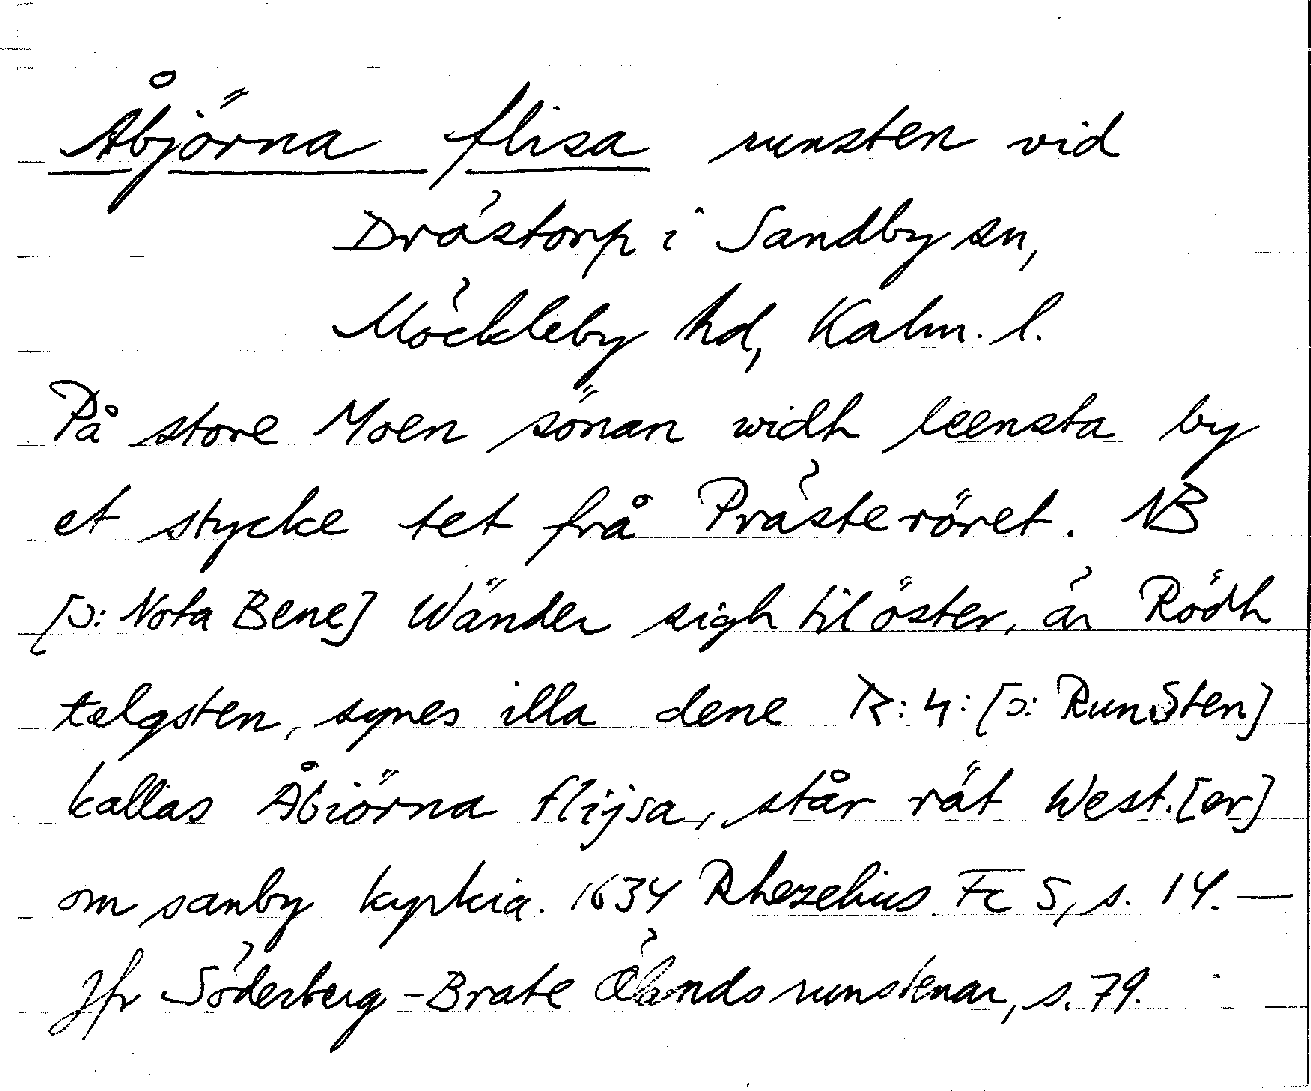 Åbjörna flisa runsten vid
Dröstorp i Sandby sn,
Möckleby hd, Kalm. l.
På store Moen sönan widh leensta by
et stycke tet frå Prästeröret. NB
[ɔ: Nota Bene] Wänder sigh til öster, är Rödh
telgsten, synes illa dene R: 4: [ɔ: RunSten]
kallas Åbiörna flijsa, står rät West.[er]
om sanby kyrkia. 1634 Rhezelius Fc 5, s. 14. —
Jfr Söderberg-Brate Ölands runstenar, s. 79.